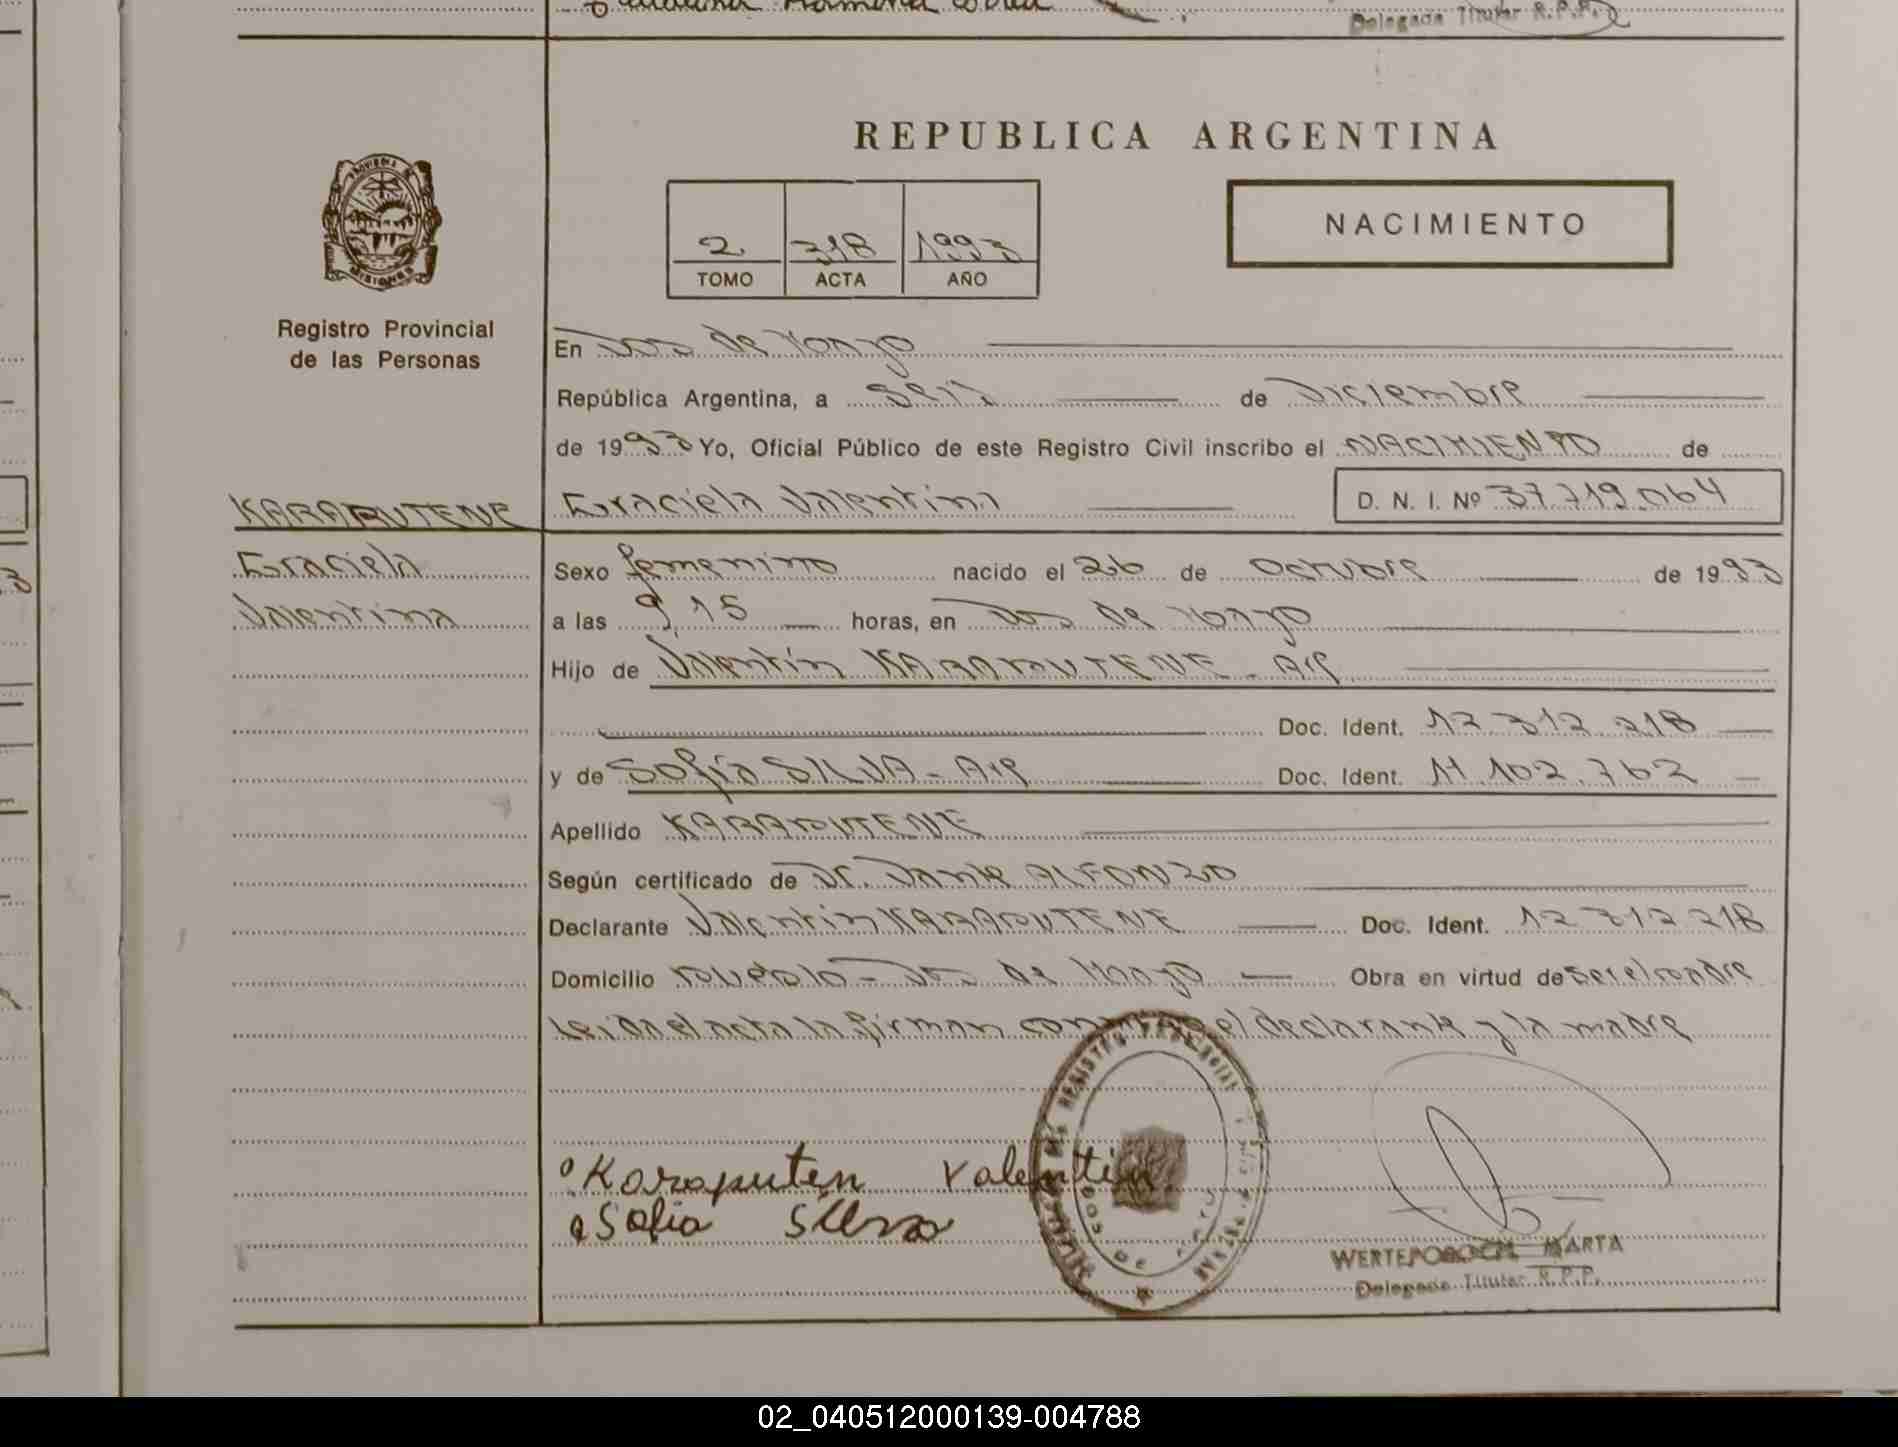 Delegada Titular R.P.P.
REPUBLICA ARGENTINA
PROVINCIA DE
MISIONES
NACIMIENTO
2 318 1993
TOMO ACTA AÑO
Registro Provincial
de las Personas
En Dos de Mayo
República Argentina, a seis de Diciembre
de 1993 Yo, Oficial Público de este Registro Civil inscribo el NACIMIENTO de
KARAPUTENE Graciela Valentina D. N. I. Nº 37.719.064
Graciela
Valentina
Sexo femenino nacido el 26 de Octubre de 1993
a las 9,15 horas, en Dos de Mayo
Hijo de Valentín KARAPUTENE - Arg
Doc. Ident. 12.312.218
y de Sofía SILVA - Arg Doc. Ident. 11.102.762
Apellido KARAPUTENE
Según certificado de Dr. Dante ALFONZO
Declarante Valentín KARAPUTENE Doc. Ident. 12.312.218
Domicilio Dos de Mayo Obra en virtud de ser el padre
Leída el acta la firman conmigo el declarante y la madre
Karaputen Valentin
Sofia Silva
REGISTRO PROVINCIAL
DOS DE MAYO
MARTA
Delegada Titular R.P.P.
02_040512000139-004788